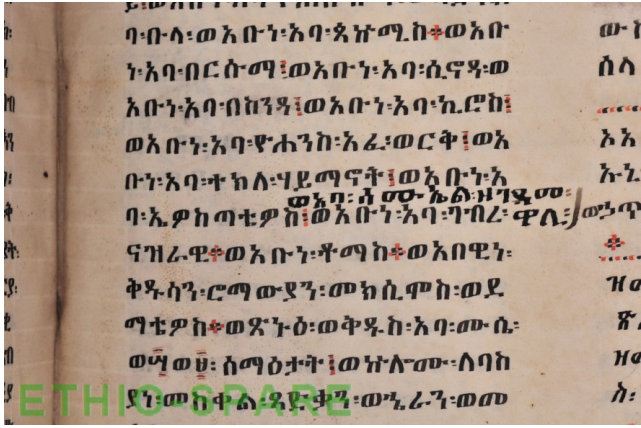 ባ፡ቡላ፡ወአቡነ፡አባ፡ጳኵሚስ፨ወአቡ
ነ፡አባ፡በርሱማ፤ወአቡነ፡አባ፡ሲኖዳ፡ወ
አቡነ፡አባ፡በከንዳ፤ወአቡነ፡አባ፡ኪሮስ፤
ወአቡነ፡አባ፡ዮሐንስ፡አፈ፡ወርቅ፤ወአ
ቡነ፡አባ፡ተክለ፡ሃይማኖት፤ወአቡነ፡አ
ወአባ፡ሳሙኤል፡ዘገዳመ፡
ባ፡ኤዎስጣቴዎስ፤ወአቡነ፡አባ፡ገብረ፡ዋሊ፡
ናዝራዊ፨ወአቡነ፡ቶማስ፨ወአበዊነ፡
ቅዱሳን፡ሮማውያን፡መክሲሞስ፡ወደ
ማቴዎስ፨ወጽኑዕ፡ወቅዱስ፡አባ፡ሙሴ፡
ሰማዕታት፤ወኵሎሙ፡ለባስ
ያነ፡መስቀል፡ጻድቃን፡ወኄራን፡ወመ
ETHIO-SPARE